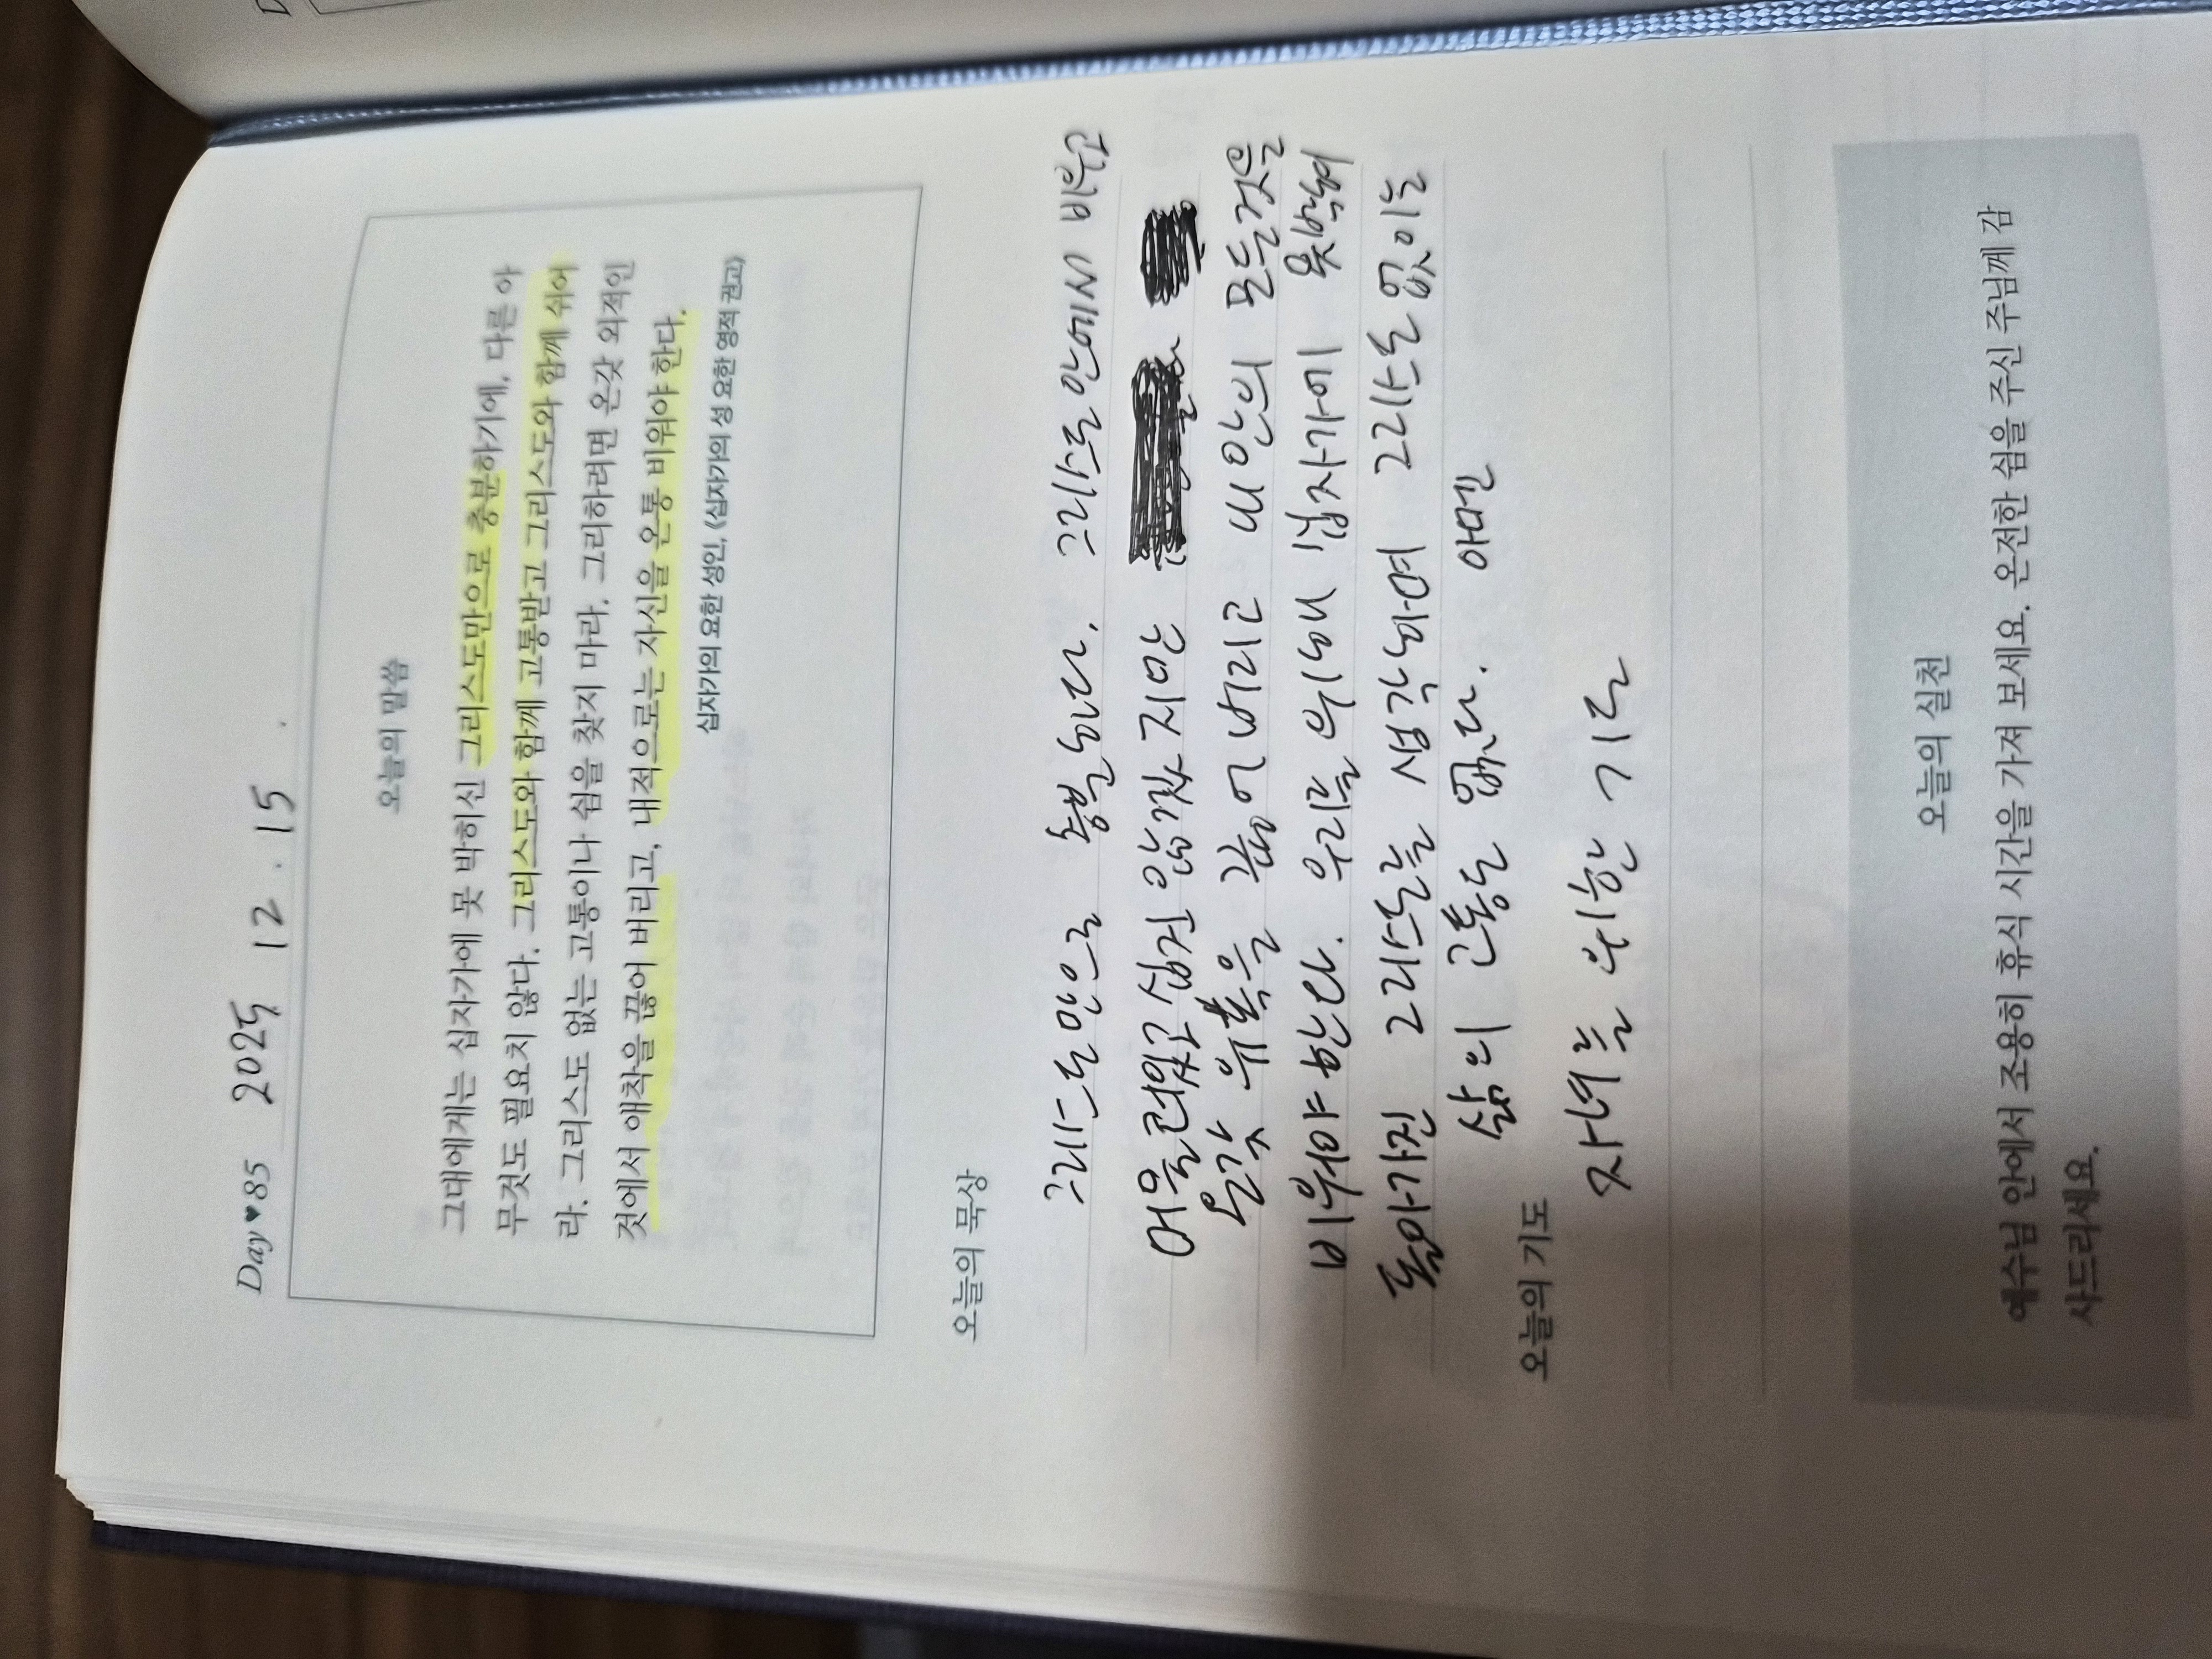 Day♥85 2025 12. 15 .
오늘의 말씀
그대에게는 십자가에 못 박히신 그리스도만으로 충분하기에, 다른 아
무것도 필요치 않다. 그리스도와 함께 고통받고 그리스도와 함께 쉬어
라. 그리스도 없는 고통이나 쉼을 찾지 마라. 그리하려면 온갖 외적인
것에서 애착을 끊어 버리고, 내적으로는 자신을 온통 비워야 한다.
십자가의 요한 성인, 《십자가의 성 요한 영적 권고》
오늘의 묵상
그리스도 만으로 충분하다. 그리스도 안에서 비우고
머물러있고 싶진 않겠지만
온갖 유혹을 끊어버리고 내 안의 모든것을
비워야 한다. 우리를 위해 십자가에 못박혀
돌아가진 그리스도를 생각하여 그리스도 없이는
삶의 고통도 없다. 아멘
오늘의 기도
자녀를 위한 기도
오늘의 실천
예수님 안에서 조용히 휴식 시간을 가져 보세요. 온전한 쉼을 주신 주님께 감
사드리세요.